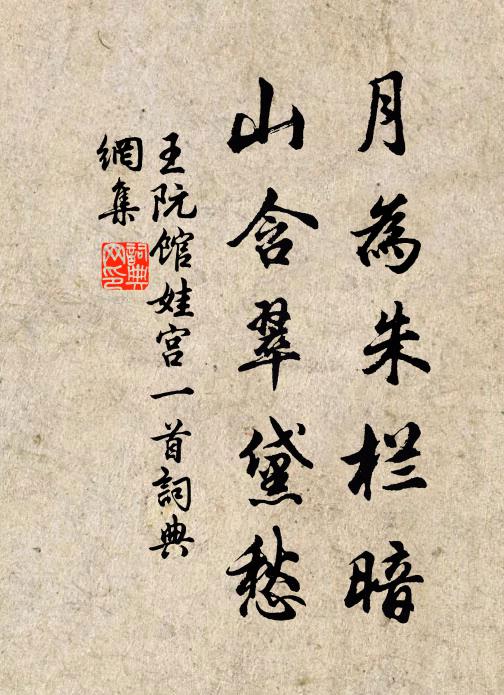 月為朱栏暗
山含翠黛愁
王阮馆娃宫一首詞典
網集
詞典
网印